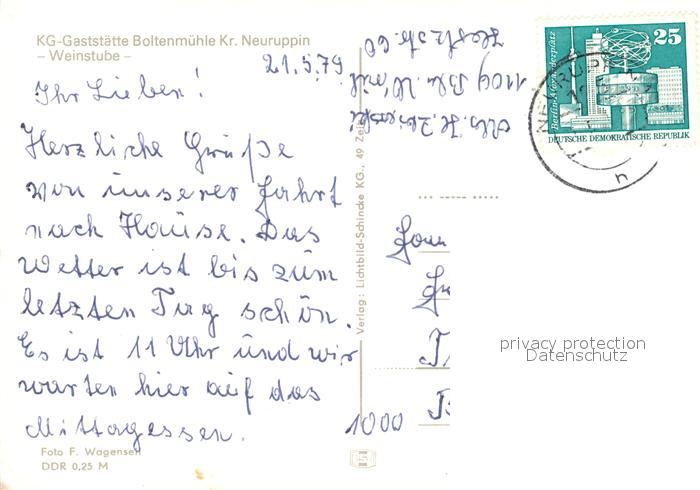 KG-Gaststätte Boltenmühle Kr. Neuruppin
– Weinstube –
21.5.79
Ihr Lieben!
Herzliche Grüße
von unserer Fahrt
nach Hause. Das
Wetter ist bis zum
letzten Tag schön.
Es ist 11 Uhr und wir
warten hier auf das
Mittagessen.
Foto F. Wagensen
DDR 0,25 M
Verlag: Lichtbild-Schincke KG., 49 Zei
Abs. H.
1109 Bln.
60
Berlin-Alexanderplatz
25
DEUTSCHE DEMOKRATISCHE REPUBLIK
NEURUPP
h
Fam
1000
privacy protection
Datenschutz